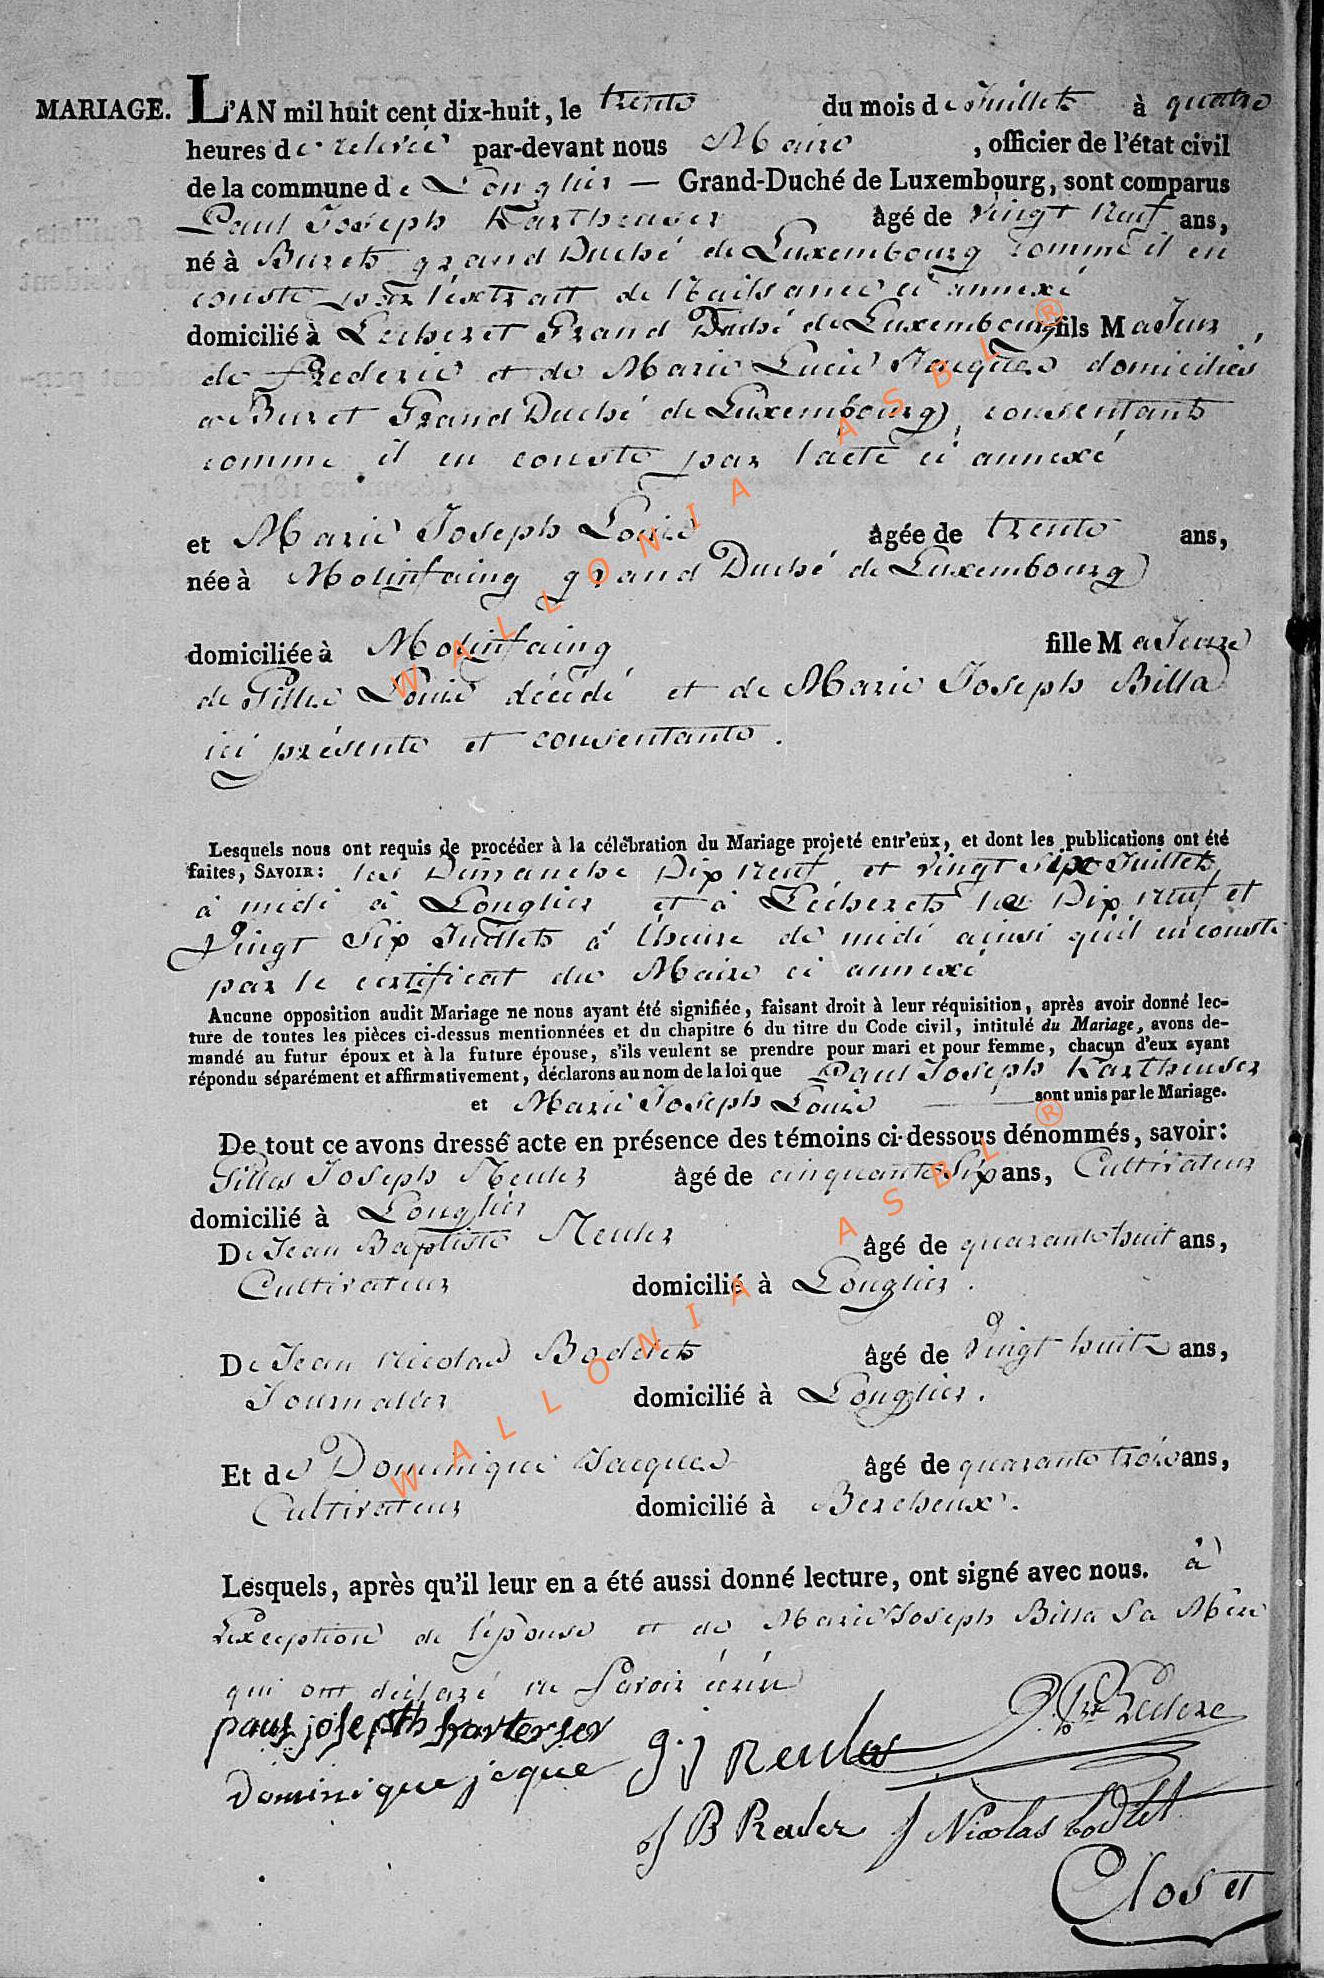 MARIAGE. L'AN mil huit cent dix-huit, le trente du mois de Juillet à quatre
heures de relevée par-devant nous Maire , officier de l'état civil
de la commune de Longlier — Grand-Duché de Luxembourg, sont comparus
Paul Joseph Kartheuser âgé de vingt neuf ans,
né à Burets grand Duché de Luxembourg comme il en
conste par l'extrait de Naissance ci annexé
domicilié à Lecheret Grand Duché de Luxembourg fils Majeur
de Frederic et de Marie Lucie domiciliés
a Buret Grand Duché de Luxembourg, consentants
comme il en conste par l'acte ci annexé
et Marie Joseph Louis âgée de trente ans,
née à Molinfaing grand Duché de Luxembourg
domiciliée à Molinfaing fille Majeure
de Gilles Louis décédé et de Marie Joseph Billa
ici présente et consentante.
Lesquels nous ont requis de procéder à la célébration du Mariage projeté entr'eux, et dont les publications ont été
faites, SAVOIR: les Dimanche Dix neuf et vingt Six Juillet
à midi à Longlier et à Lécherets les Dix neuf et
Vingt Six Juillets à l'heure de midi ainsi qu'il en conste
par le certificat du Maire ci annexé
Aucune opposition audit Mariage ne nous ayant été signifiée, faisant droit à leur réquisition, après avoir donné lec-
ture de toutes les pièces ci-dessus mentionnées et du chapitre 6 du titre du Code civil, intitulé du Mariage, avons de-
mandé au futur époux et à la future épouse, s'ils veulent se prendre pour mari et pour femme, chacun d'eux ayant
répondu séparément et affirmativement, déclarons au nom de la loi que Paul Joseph Kartheuser
et Marie Joseph Louis sont unis par le Mariage.
De tout ce avons dressé acte en présence des témoins ci-dessous dénommés, savoir:
Gilles Joseph Reuler âgé de cinquante Six ans, Cultivateur
domicilié à Longlier
De Jean Baptiste Reuler âgé de quarante huit ans,
Cultivateur domicilié à Longlier.
De Jean Nicolas Bodelets âgé de Vingt huit ans,
Journalier domicilié à Longlier.
Et de Dominique Jacques âgé de quarante trois ans,
Cultivateur domicilié à Bercheux.
Lesquels, après qu'il leur en a été aussi donné lecture, ont signé avec nous. à
L'exception de l'épouse et de Marie Joseph Billa Sa Mère
qui ont déclaré ne Savoir écrire
paul joseph karterser
g. j Reuler
Leclere
Dominique jeque
J B Reuler J Nicolas bodlet
Closet
WALLONIA ASBL ®
WALLONIA ASBL ®